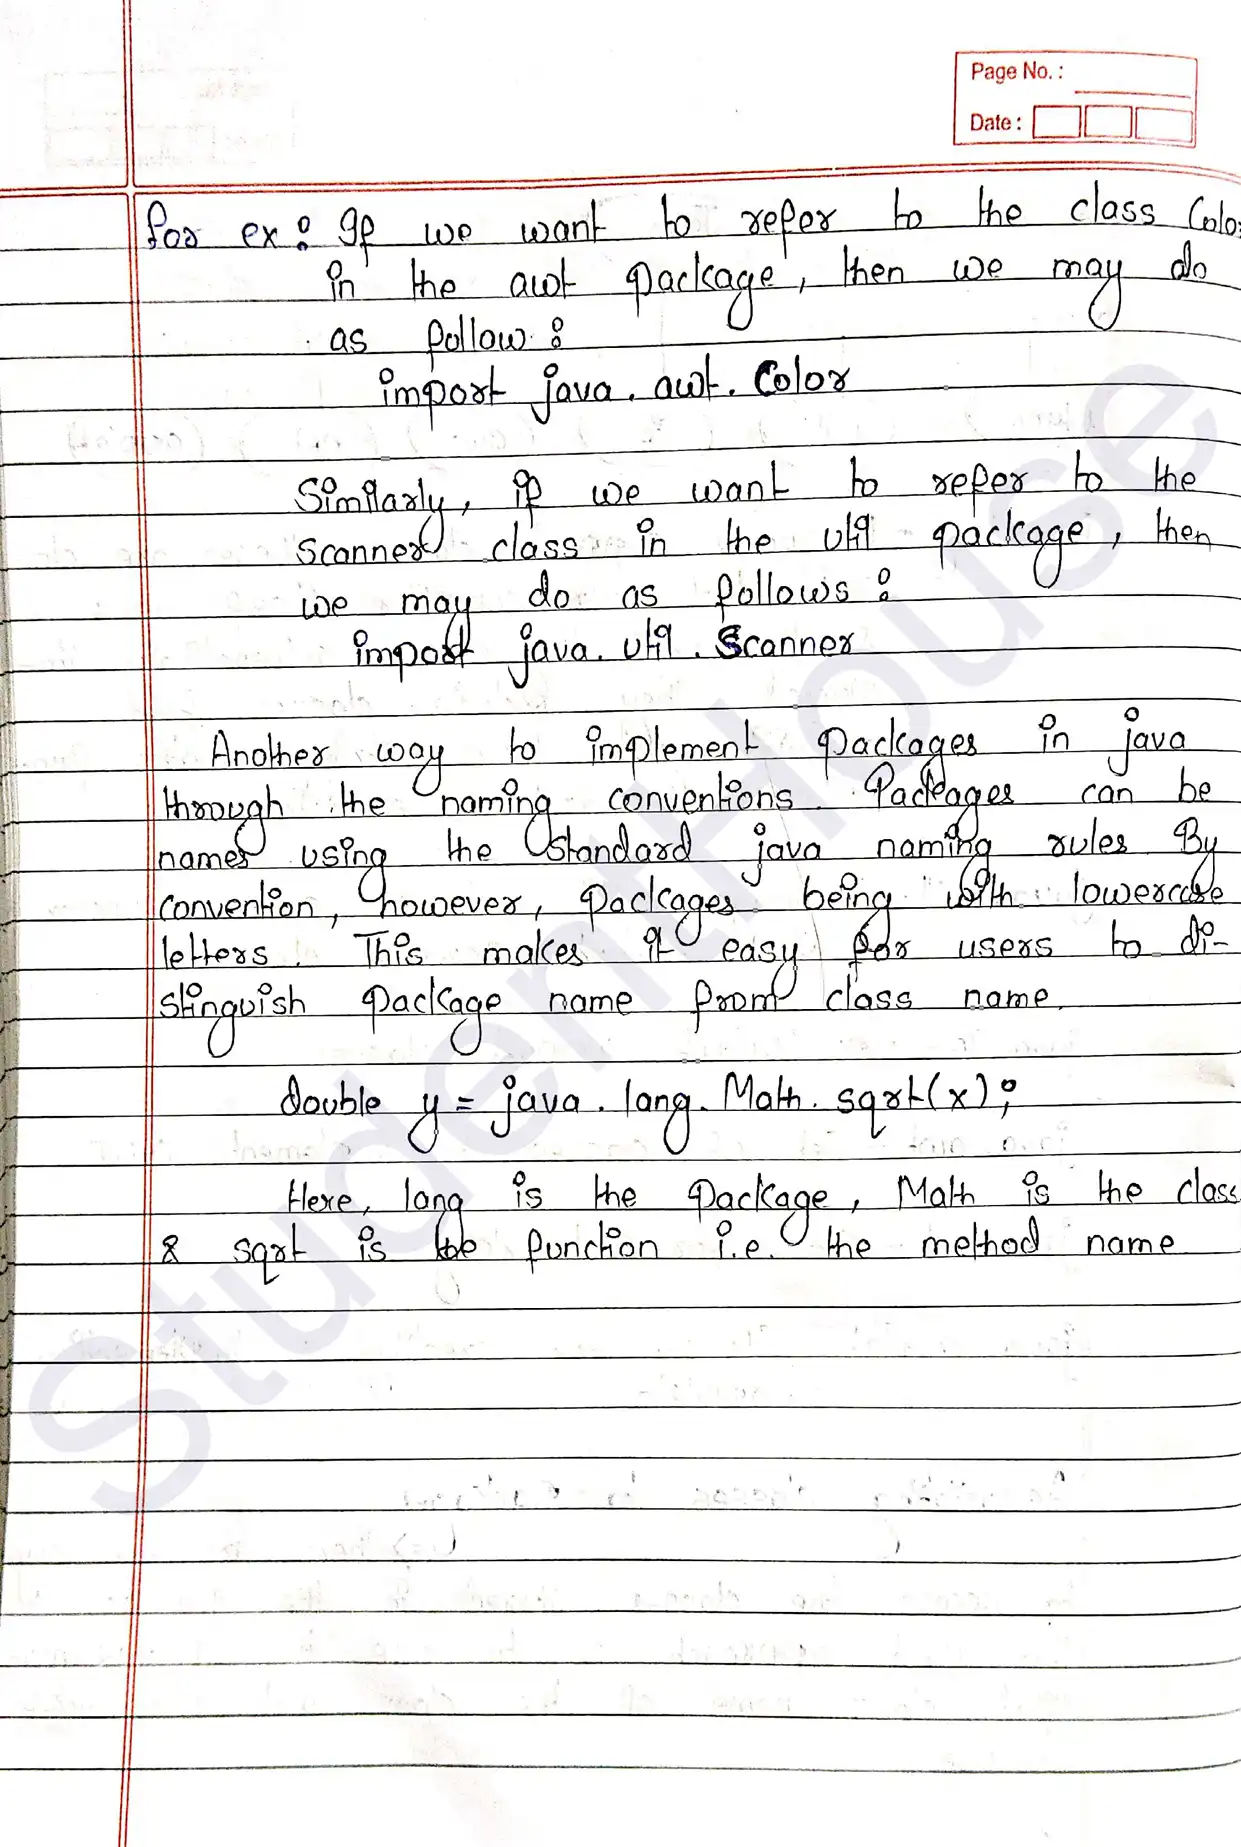 Page No. :
Date :
for ex: If we want to refer to the class Color
in the awt package, then we may do
as follow :
import java . awt . Color
Similarly, if we want to refer to the
scanner class in the util package, then
we may do as follows :
import java. util . Scanner
Another way to implement packages in java
through the naming conventions. Packages can be
names using the standard java naming rules By
convention, however, packages being with lowercase
letters. This makes it easy for users to di-
stinguish package name from class name.
double y = java . lang. Math. sqrt(x);
Here, lang is the package, Math is the class
& sqrt is the function i.e. the method name
StudentHouse